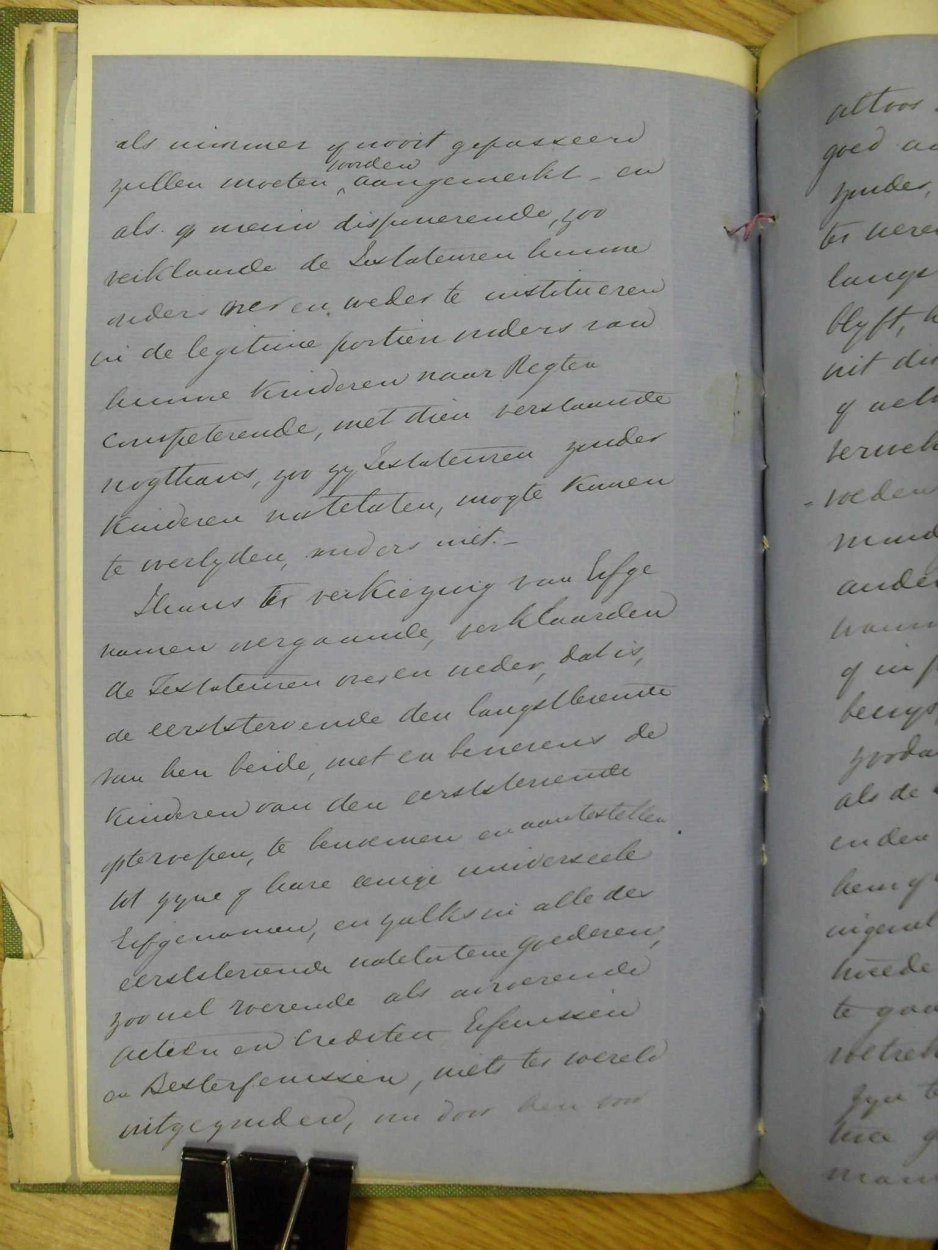 als nimmer of nooit gepasseerd
zullen moeten worden aangemerkt - en
als op nieuw disponerende, zoo
verklaarde de Testateuren hunne
ouders over en weder te institueren
in de legitime portien ouders van
hunne Kinderen naar Regten
competerende, met dien verstaande
nogthans, zoo zy Testateuren zonder
Kinderen natelaten, mogte Komen
te overlyden, anders niet. -
Thans ter verkiezing van Erfge
namen overgaande, verklaarden
de Testateuren over en weder, dat is,
de eerststervende den langstlevende
van hen beide, met en benevens de
Kinderen van den eerststervende
opteroepen, te benoemen en aantestellen
tot zyne of hare eenige universeele
Erfgenamen, en zulks in alle des
eerststervende natelatene goederen,
zoo wel roerende als onroerende
actien en Crediten Erfenissen
en Besterfenissen, niets ter wereld
uitgezonderd, om door hen voor
altoos
goed
zonder,
ter were
langs
blyft,
uit di
of
verwek
voeden
mond
ander
waa
of in
bewys
zoda
als de
en den
hem of
ingeval
tweede
te gaa
voltrek
zyn t
twee